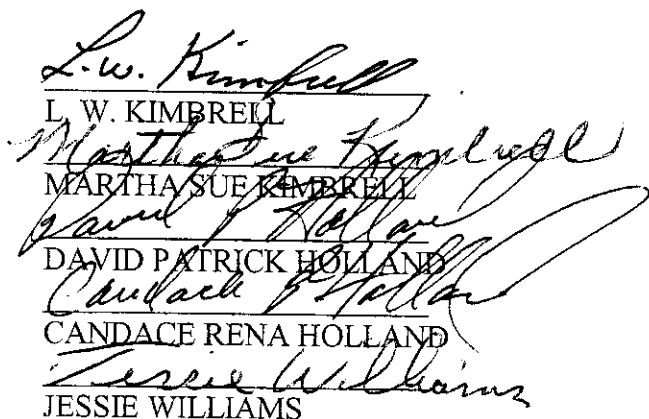 L.w. Kimbrell
L. W. KIMBRELL
Martha Sue Kimbrell
MARTHA SUE KIMBRELL
David P Holland
DAVID PATRICK HOLLAND
Candace R Holland
CANDACE RENA HOLLAND
Jessie Williams
JESSIE WILLIAMS